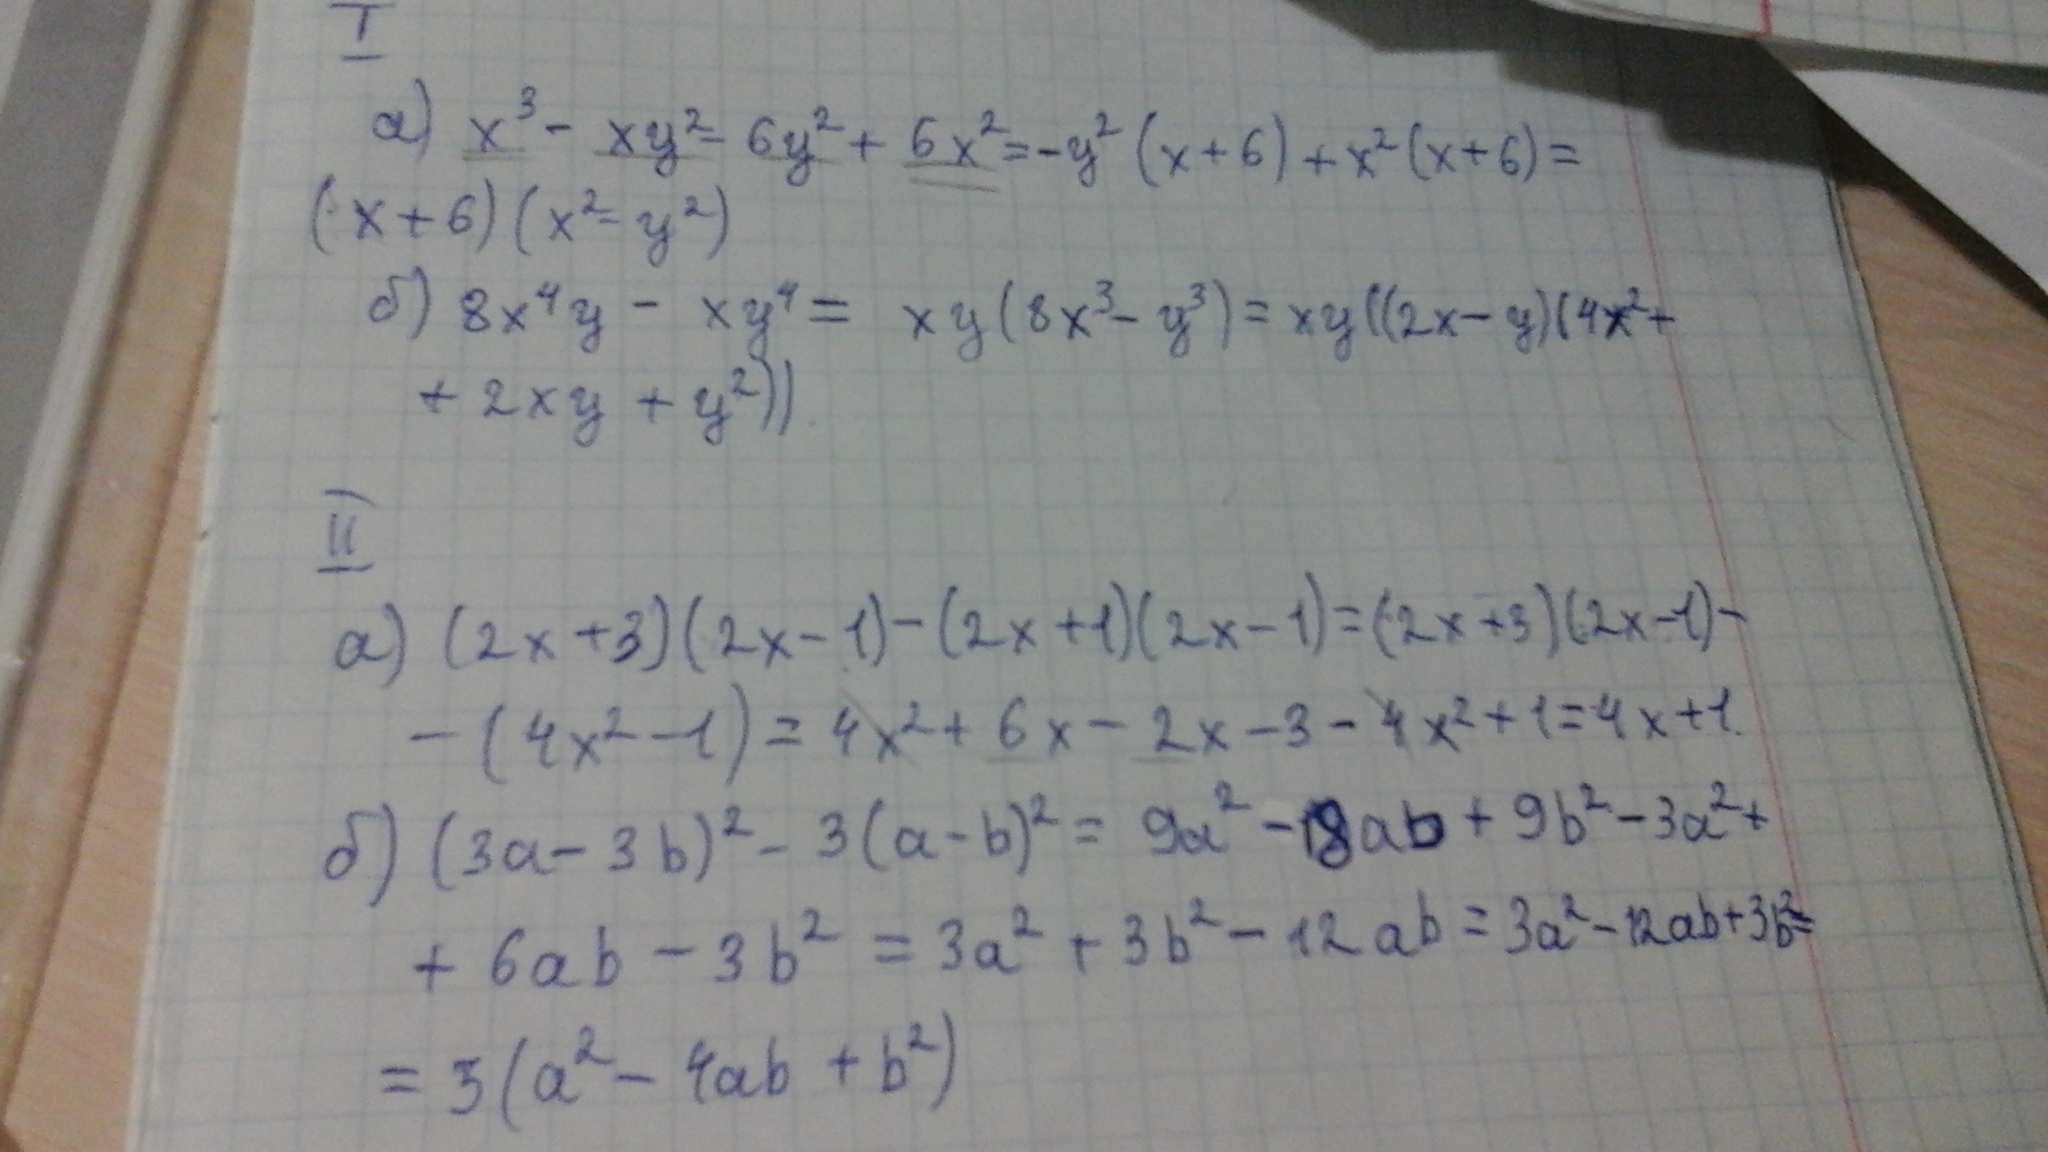 I
а) x³ - xy² - 6y² + 6x² = -y² (x+6) + x² (x+6) =
(x+6) (x² - y²)
б) 8x⁴y - xy⁴ = xy (8x³ - y³) = xy ((2x - y) (4x² +
+ 2xy + y²))
II
а) (2x+3) (2x-1) - (2x+1) (2x-1) = (2x+3) (2x-1) -
- (4x² - 1) = 4x² + 6x - 2x - 3 - 4x² + 1 = 4x + 1.
б) (3a - 3b)² - 3 (a - b)² = 9a² - 18ab + 9b² - 3a² +
+ 6ab - 3b² = 3a² + 3b² - 12ab = 3a² - 12ab + 3b² =
= 3 (a² - 4ab + b²)